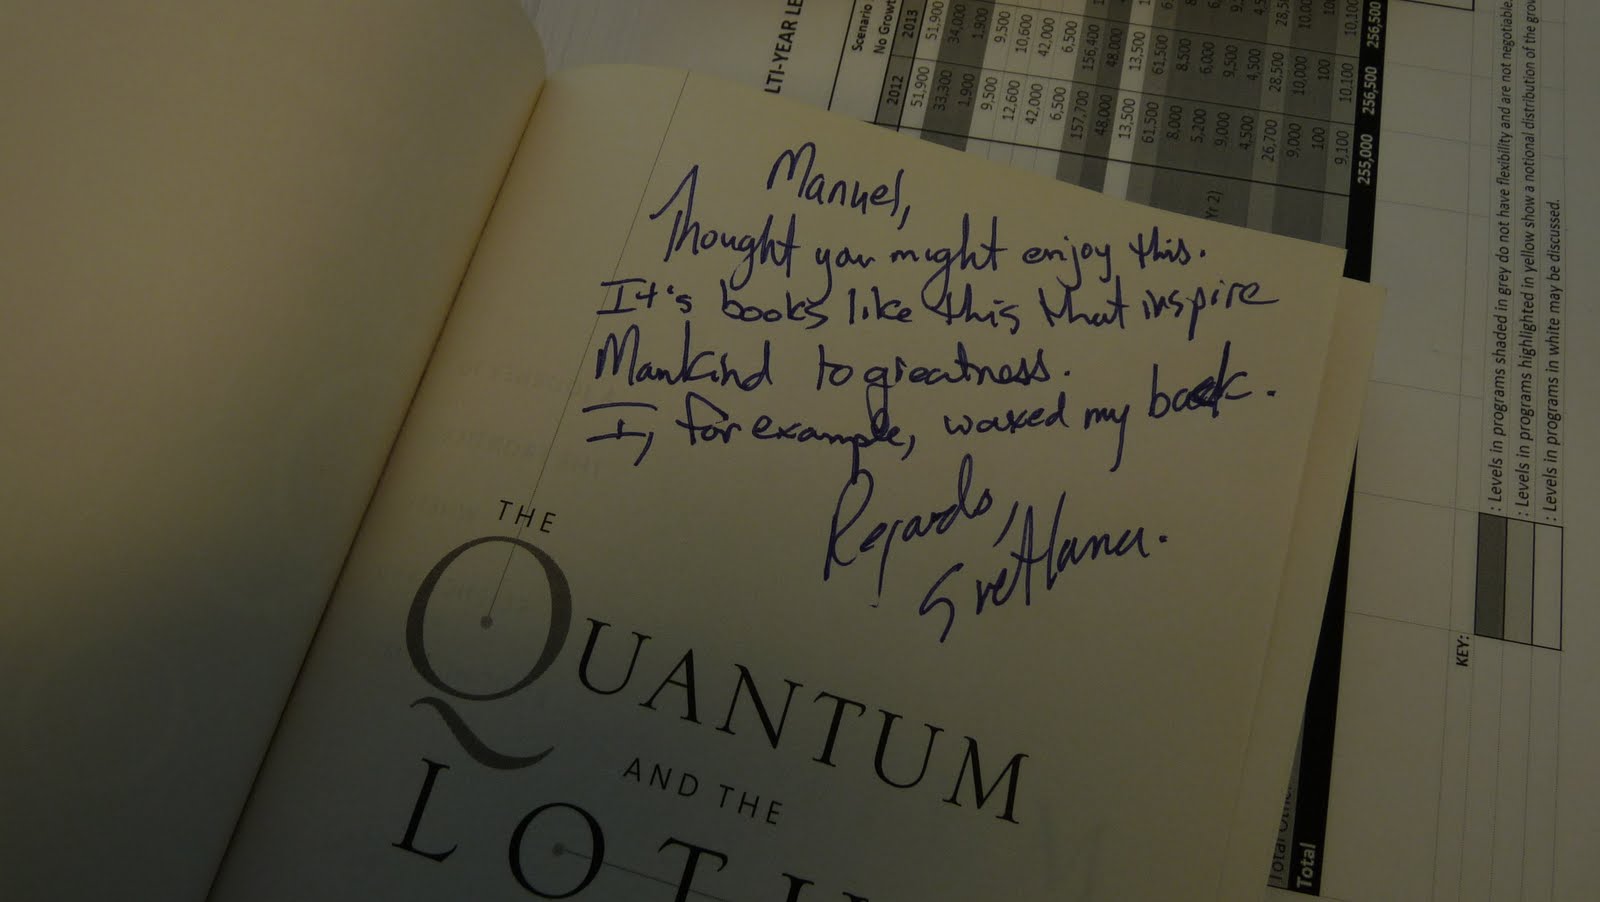 Manuel,
Thought you might enjoy this.
It's books like this that inspire
Mankind to greatness.
I, for example, waxed my back.
Regards,
Svetlana.
THE
QUANTUM
AND THE
LOTU
LTI-YEAR LE
Scenario
No Growt
2012 2013
51,900 51,900
33,300 34,000
1,900 1,900
9,500 9,500
12,600 10,600
42,000 42,000
6,500 6,500
157,700 156,400
48,000 48,000
13,500 13,500
61,500 61,500
8,000 8,500
5,200 6,000
9,000 9,500
4,500 4,500
26,700 28,500 28,5
9,000 10,000 10,00
100 100 10
9,100 10,100 10,100
255,000 256,500 256,500
Yr 2)
Total
KEY:
: Levels in programs shaded in grey do not have flexibility and are not negotiable.
: Levels in programs highlighted in yellow show a notional distribution of the grow
: Levels in programs in white may be discussed.